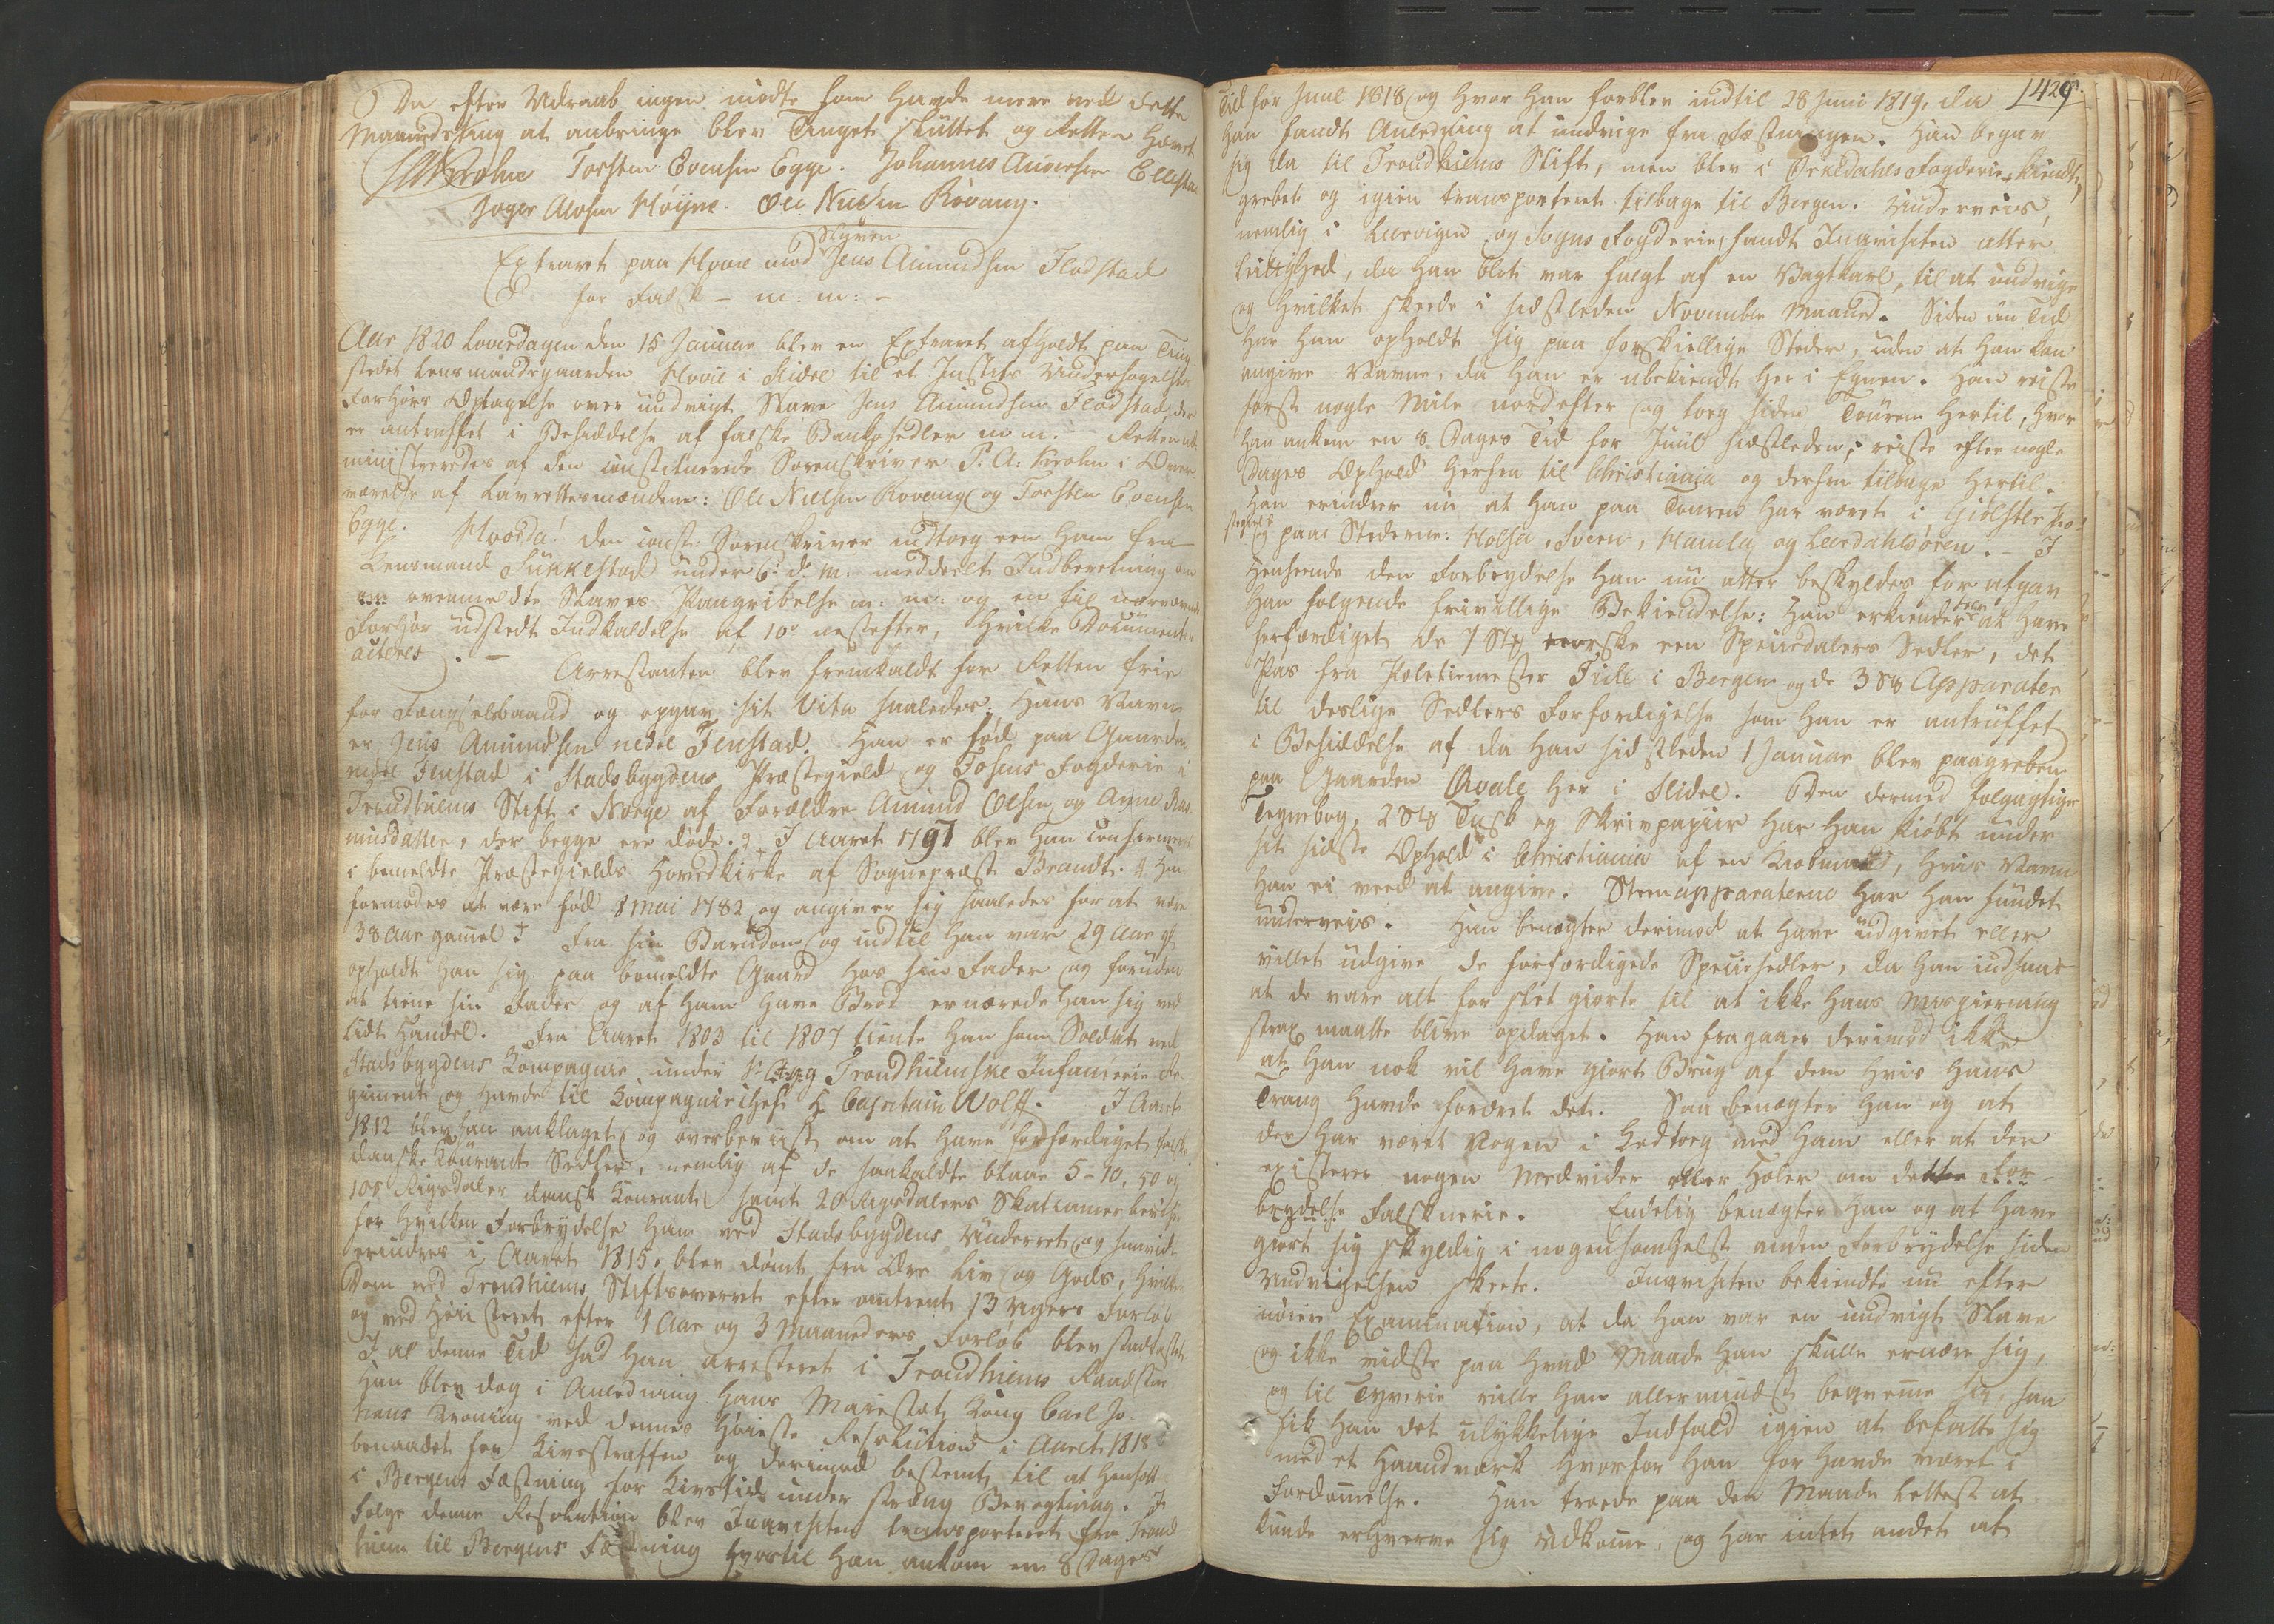 Da efter Udraab ingen mødte som havde mere ved dette
Maanedsting at anbringe blev Tinget sluttet og Retten hævet
Krohn Torsten Evensen Egge. Johannes Andersen Ellesta
Joger Alvsen Høijne. Ole Nielsen Rovang.
Extraret paa Hovie mod Slaven Jens Amundsen Flodstad
for Falsk - m: m: -
Aar 1820 Løverdagen den 15 Januar blev en Extraret afholdt paa Ting
stedet Lensmandsgaarden Hovie i Slidre til et Justits Undersøgelses
Forhørs Optagelse over undvigt Slave Jens Amundsen Flodstad der
er antruffet i Besiddelse af falske Bankosedler m m. - Retten ad
ministreredes af den constituerede Sorenskriver P. A: Krohn i Over
værelse af Lavrettesmændene: Ole Nielsen Rovang og Torsten Evensen
Egge. Hvorda! den const: Sorenskriver indtog een ham fra
Lensmand Sukkestad under 6. d. M. meddeelt Indberetning om
ovenmeldte Slaves Paagribelse m: m: og en til nærværende
Forhør udstedt Indkaldelse af 10de næstefter, hvilke Documenter
acteres. - Arrestanten blev fremkaldt for Retten frie
for Fængselsbaand og opgav sit Vita saaledes: Hans Navn
er Jens Amundsen nedre Fenstad. Han er fød paa Gaarden
nedre Fenstad i Stadsbygdens Præstegield og Fosens Fogderie i
Trondhiems Stift i Norge af Forældre Amund Olsen og Anne Ras
musdatter, der begge ere døde. I Aaret 1797 blev han Confirmeret
i bemeldte Præstegields Hovedkirke af Sognepræst Brandt. Han
formodes at være fød 8 Mai 1782 og angiver sig saaledes for at være
38 Aar gammel. Fra sin Barndom og indtil han var 29 Aar gl
opholdt han sig paa bemeldte Gaard hos sin Fader og foruden
at tiene sin Fader og af ham have Brød ernærede han sig ved
lidt Handel. Fra Aaret 1803 til 1807 tiente han som Soldat ved
Stadsbygdens Kompagnie under Trondhiemske Infanterie Re
giment og havde til Kompagniechef H. Capitain Wolff. I Aaret
1812 blev han anklaget og overbeviist om at have forfærdiget falske
danske Courant Sedler, nemlig af de saakaldte blaae 5 - 10, 50 og
100 Rigsdaler dansk Courant samt 20 Rigsdalers Skatkammerbeviser
for hvilken Forbrydelse han ved Stadsbygdens Underret og saavidt
erindres i Aaret 1815, blev dømt fra Ære Liv og Gods, hvilken
Dom ved Trondhiems Stiftsoverret efter omtrent 13 Ugers Forløb
og ved Høiesteret efter 1 Aar og 3 Maaneders Forløb blev stadfæstet
I al denne Tid sad han arresteret i Trondhiems Raadstue
Han blev dog i Anledning Hans Majestæt Kong Carl Jo
hans Kroning ved dennes høieste Resolution i Aaret 1818
benaadet for Livsstraffen og derimod bestemt til at hensættes
i Bergens Fæstning for Livstid under streng Bevogtning. I
Følge denne Resolution blev Inqvisiten transporteret fra Trond
hiem til Bergens Fæstning hvortil han ankom en 8 Dages
1429
Tid for Juul 1818 og hvor han forblev indtil 28 Juni 1819, da
han fandt Anledning at undvige fra Fæstningen. Han begav
sig da til Trondhiems Stift, men blev i Ørkedahls Fogderie kiendt,
grebet og igien transporteret tilbage til Bergen. Underveis,
nemlig i Leervigen og Sogns Fogderie, fandt Inqvisiten atter
Leilighed, da han blot var fulgt af en Vagtkarl, til at undvige
og hvilket skeede i sidstleden November Maaned. Siden den Tid
har han opholdt sig paa forskiellige Steder, uden at han kan
angive Navne, da han er ubekiendt her i Egnen. Han reiste
først nogle Mile nordefter og tog siden Touren hertil, hvor
han ankom en 8 Dages Tid for Juul sidstleden, reiste efter nogle
Dages Ophold herfra til Christiania og derfra tilbage hertil.
Han erindrer nu at han paa Touren har været i Giølster
og paa Stederne: Holsa, Sveen, Hamla og Leerdahlsøren. - I
Henseende den Forbrydelse han nu atter beskyldes for afgav
han følgende frivillige Bekiendelse: Han erkiender at have
forfærdiget de 7 Stk norske een Speciedalers Sedler, det
Pas fra Politiemester Fiill i Bergen og de 3 Stk Apparater
til deslige Sedlers Forfærdigelse som han er antruffet
i Besiddelse af da han sidstleden 1 Januar blev paagreben
paa Gaarden Qvale her i Slidre. Den dermed følgagtige
Tegnebog, 2 Stk Tusk og Skrivpapiir har han kiøbt under
sit sidste Ophold i Christiania af en Kiøbmand, hvis Navn
han ei veed at angive. Steenapparaterne har han fundet
underveis. Han benægter derimod at have udgivet eller
villet udgive de forfærdigede Speciesedler, da han indsaae
at de vare alt for slet giorte til at ikke hans Misgierning
strax maatte blive opdaget. Han fragaaer derimod ikke
at han nok vil have giort Brug af dem hvis hans
Trang havde fordret det. Saa benægter han og at
der har været Nogen i Ledtog med ham eller at der
existerer nogen Medvider eller Hæler om dette For-
brydelse Falsknerie. Endelig benægter han og at have
giort sig skyldig i nogensomhelst anden Forbrydelse siden
Undvigelsen skeete. Inqvisiten bekiendte nu efter
nøiere Examination, at da han var en undvigt Slave
og ikke vidste paa hvad Maade han skulle ernære sig,
og til Tyverie ville han allermindst beqvemme sig, saa
fik han det ulykkelige Indfald igien at befatte sig
med et Haandværk hvorfor han før havde været i
Fordømmelse. Han troede paa den Maade lettest at
kunde erhverve sig Udkomme, og har intet andet at